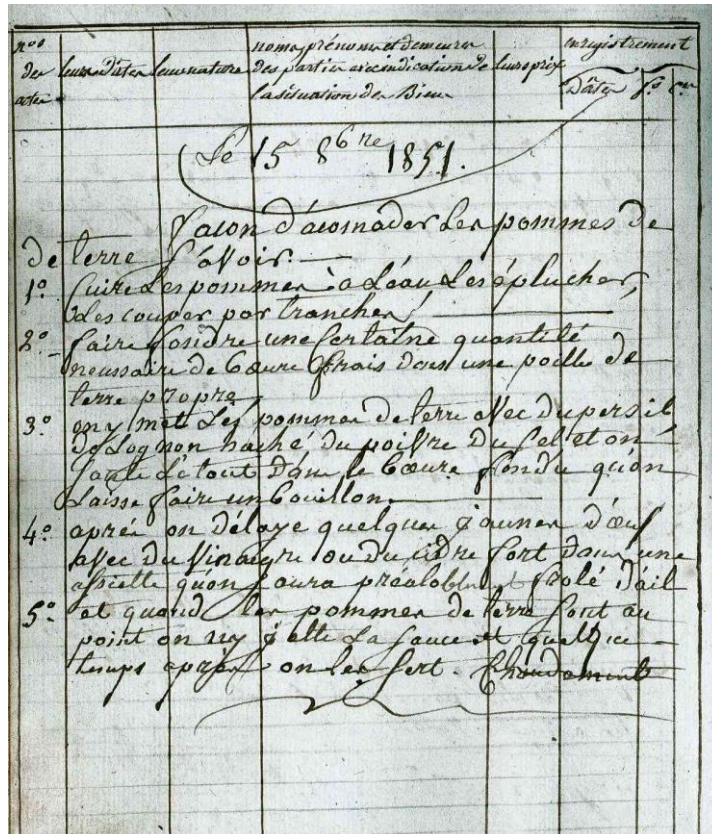 nos
des
actes
leurs Dates
leur nature
noms, prénoms et demeures
des parties avec indication de
la situation des Biens
leurs prix
enregistrement
Dates
fo
Le 15 8bre 1851.
facon d'acomader Les pommes de
de terre S'avoir. —
1o. Cuire Les pommes à L'éau Les éplucher,
Les couper par tranches
2o. faire fondre une Certaine quantité
néssaire de beure frais dans une poille de
terre propre
3o. on y met Les pommes de terre avec du persil
De Lognon haché du poivre Du sel et on
saute Le tout Dans le beure fondu qu'on
Laisse faire un bouillon.
4o. aprés on Délaye quelques jaunes d'œuf
avec du Vinaigre ou du cidre fort dans une
assiette qu'on aura préalablement frolé d'ail
5o. et quand les pommes de terre sont au
point on ny jette La sauce et quelque
temps après on les sert Chaudement